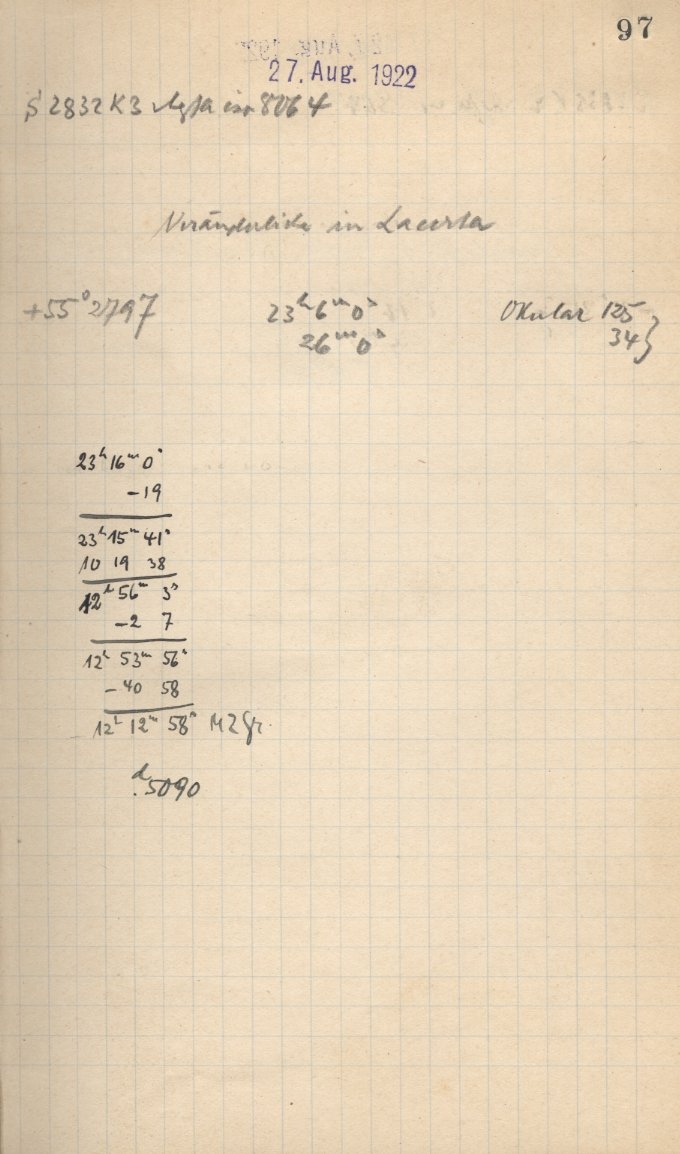 97
27. Aug. 1922
S 2832 K3 Agfa iso 8064
Veränderliche in Lacerta
+55° 2797 23ʰ 6ᵐ 0ˢ Okular 125
26ᵐ 0ˢ 34}
23ʰ 16ᵐ 0ˢ
-19
23ʰ 15ᵐ 41ˢ
10 19 38
12ʰ 56ᵐ 3ˢ
-2 7
12ʰ 53ᵐ 56ˢ
-40 58
12ʰ 12ᵐ 58ˢ MZGr.
ᵈ.5090